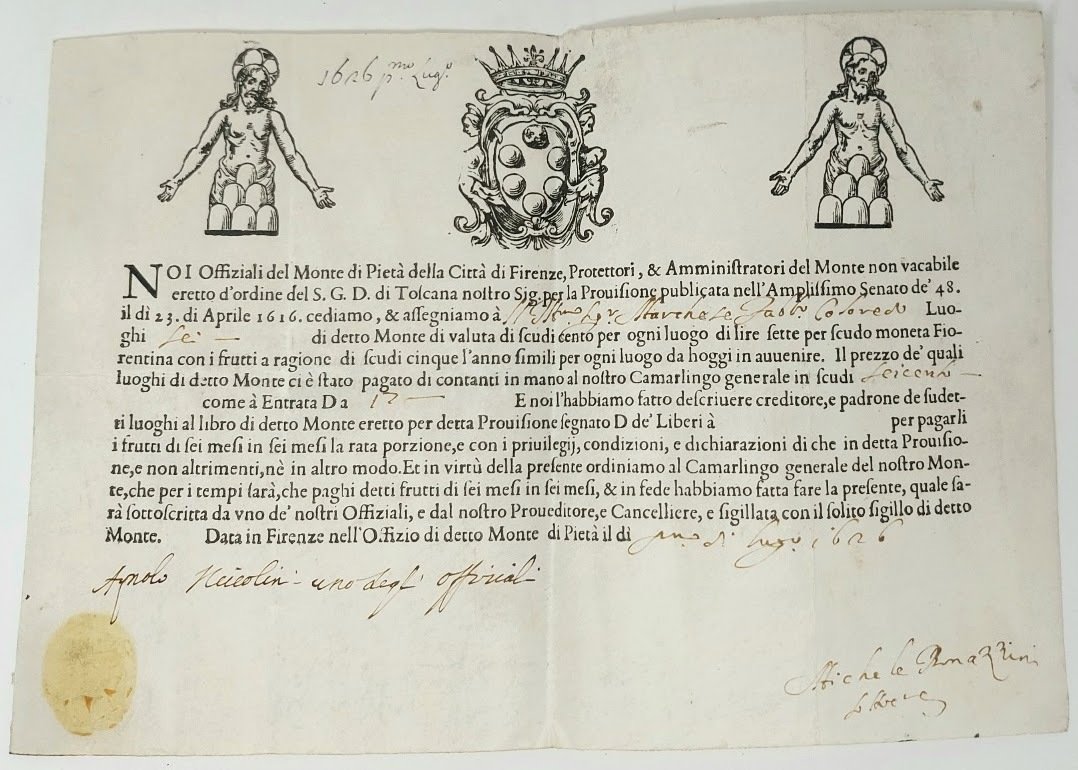 1626 p.mo Lug.o
NOI Offiziali del Monte di Pietà della Città di Firenze, Protettori, & Amminiſtratori del Monte non vacabile
eretto d'ordine del S. G. D. di Toſcana noſtro Sig. per la Prouiſione publicata nell'Ampliſſimo Senato de' 48.
il dì 23. di Aprile 1616. cediamo, & aſſegniamo à Marcheſe Coloredo Luo-
ghi Sei — di detto Monte di valuta di ſcudi cento per ogni luogo di lire ſette per ſcudo moneta Fio-
rentina con i frutti a ragione di ſcudi cinque l'anno ſimili per ogni luogo da hoggi in auuenire. Il prezzo de' quali
luoghi di detto Monte ci è ſtato pagato di contanti in mano al noſtro Camarlingo generale in ſcudi ſeicento —
come à Entrata D a — E noi l'habbiamo fatto deſcriuere creditore, e padrone de ſudet-
ti luoghi al libro di detto Monte eretto per detta Prouiſione ſegnato D de' Liberi à per pagarli
i frutti di ſei meſi in ſei meſi la rata porzione, e con i priuilegij, condizioni, e dichiarazioni di che in detta Prouiſio-
ne, e non altrimenti, nè in altro modo. Et in virtù della preſente ordiniamo al Camarlingo generale del noſtro Mon-
te, che per i tempi ſarà, che paghi detti frutti di ſei meſi in ſei meſi, & in fede habbiamo fatta fare la preſente, quale ſa-
rà ſottoſcritta da vno de' noſtri Offiziali, e dal noſtro Proueditore, e Cancelliere, e ſigillata con il ſolito ſigillo di detto
Monte. Data in Firenze nell'Offizio di detto Monte di Pietà il dì p.mo di Lug.o 1626
Agnolo uno degl' offitiali
Michele